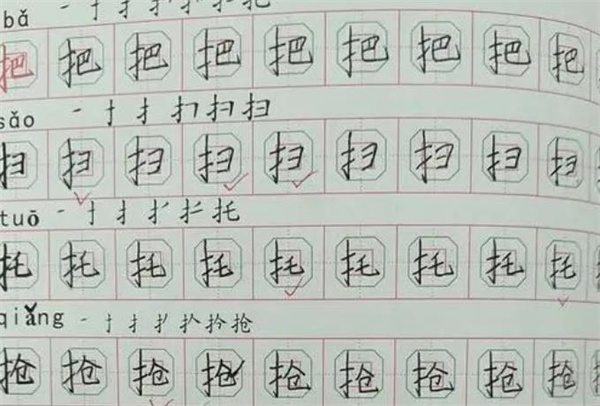 bǎ 一 扌 扌
把 把 把 把 把 把 把 把 把
sǎo 一 扌 扫 扫
扫 扫 扫 扫 扫 扫 扫 扫 扫
tuō 一 扌 托
托 托 托 托 托 托 托 托 托
qiǎng 一 扌 抢
抢 抢 抢 抢 抢 抢 抢 抢 抢